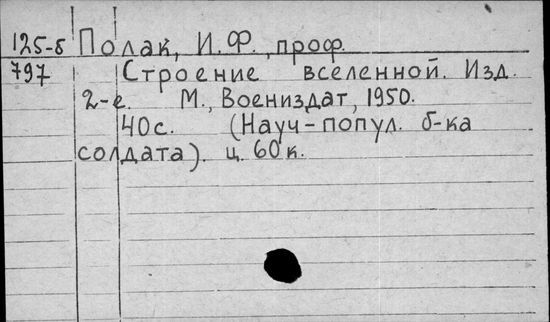 125-5 Полак, И.Ф., проф.
797 Строение вселенной. Изд.
2-е. М., Воениздат, 1950.
40с. (Науч-попул. б-ка
солдата). ц. 60к.